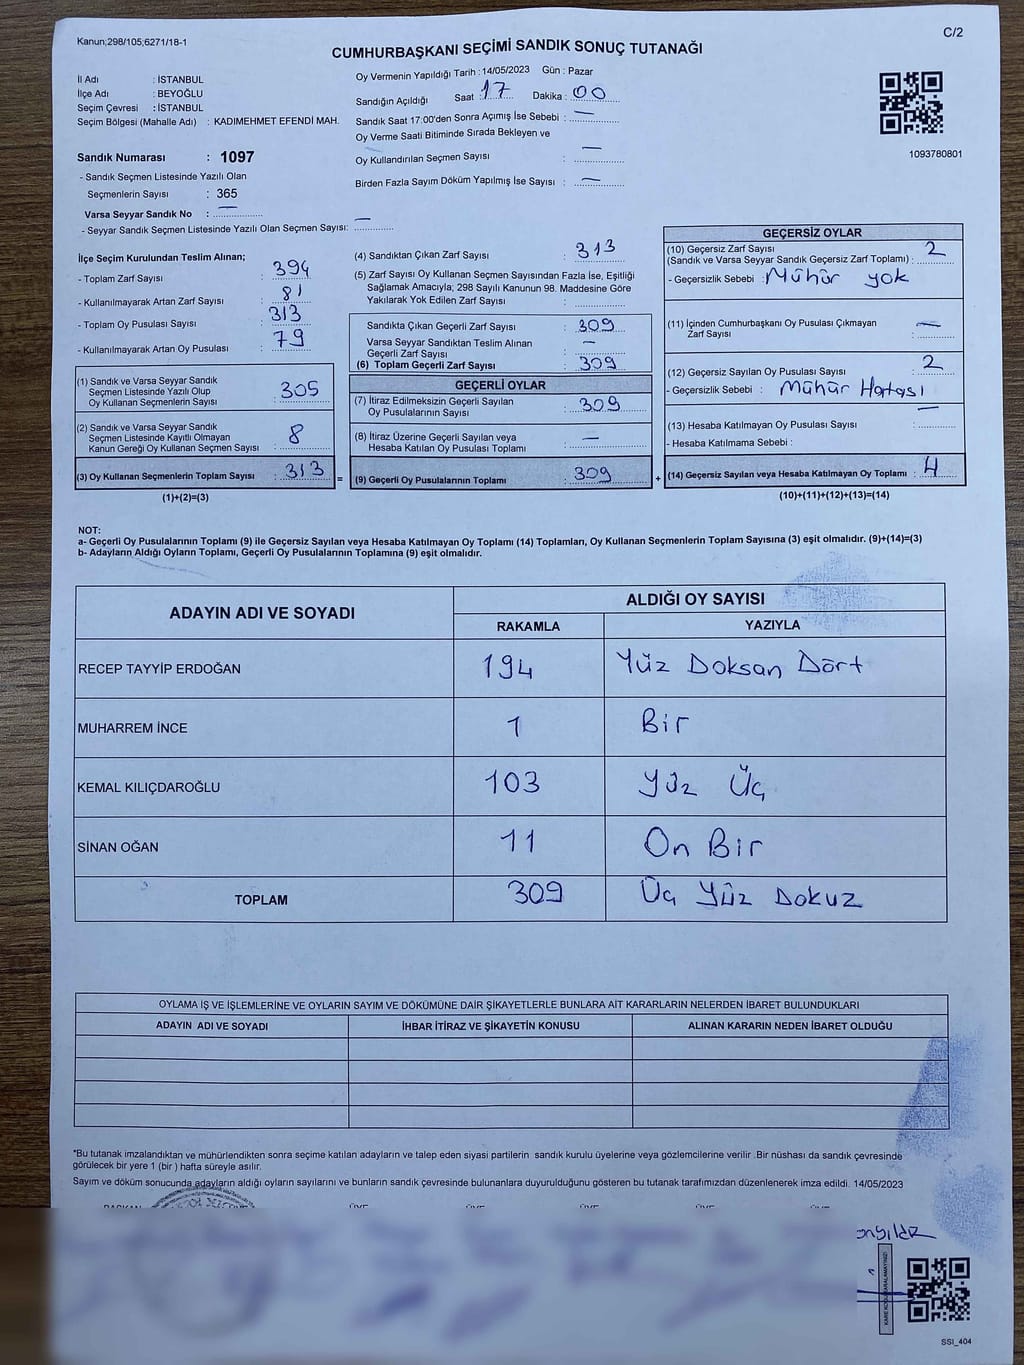 Kanun;298/105;6271/18-1
C/2
CUMHURBAŞKANI SEÇİMİ SANDIK SONUÇ TUTANAĞI
İl Adı : İSTANBUL
İlçe Adı : BEYOĞLU
Seçim Çevresi : İSTANBUL
Seçim Bölgesi (Mahalle Adı) : KADIMEHMET EFENDİ MAH.
Sandık Numarası : 1097
- Sandık Seçmen Listesinde Yazılı Olan
Seçmenlerin Sayısı : 365
Varsa Seyyar Sandık No : —
- Seyyar Sandık Seçmen Listesinde Yazılı Olan Seçmen Sayısı: —
Oy Vermenin Yapıldığı Tarih : 14/05/2023 Gün : Pazar
Sandığın Açıldığı Saat : 17 Dakika : 00
Sandık Saat 17:00'den Sonra Açımış İse Sebebi : —
Oy Verme Saati Bitiminde Sırada Bekleyen ve
Oy Kullandırılan Seçmen Sayısı : —
Birden Fazla Sayım Döküm Yapılmış İse Sayısı : —
1093780801
İlçe Seçim Kurulundan Teslim Alınan;
- Toplam Zarf Sayısı : 394
- Kullanılmayarak Artan Zarf Sayısı : 81
- Toplam Oy Pusulası Sayısı : 313
- Kullanılmayarak Artan Oy Pusulası : 79
(1) Sandık ve Varsa Seyyar Sandık
Seçmen Listesinde Yazılı Olup
Oy Kullanan Seçmenlerin Sayısı : 305
(2) Sandık ve Varsa Seyyar Sandık
Seçmen Listesinde Kayıtlı Olmayan
Kanun Gereği Oy Kullanan Seçmen Sayısı : 8
(3) Oy Kullanan Seçmenlerin Toplam Sayısı : 313
(1)+(2)=(3)
(4) Sandıktan Çıkan Zarf Sayısı : 313
(5) Zarf Sayısı Oy Kullanan Seçmen Sayısından Fazla İse, Eşitliği
Sağlamak Amacıyla; 298 Sayılı Kanunun 98. Maddesine Göre
Yakılarak Yok Edilen Zarf Sayısı :
Sandıkta Çıkan Geçerli Zarf Sayısı : 309
Varsa Seyyar Sandıktan Teslim Alınan
Geçerli Zarf Sayısı : —
(6) Toplam Geçerli Zarf Sayısı : 309
GEÇERLİ OYLAR
(7) İtiraz Edilmeksizin Geçerli Sayılan
Oy Pusulalarının Sayısı : 309
(8) İtiraz Üzerine Geçerli Sayılan veya
Hesaba Katılan Oy Pusulası Toplamı : —
= (9) Geçerli Oy Pusulalarının Toplamı : 309 +
GEÇERSİZ OYLAR
(10) Geçersiz Zarf Sayısı
(Sandık ve Varsa Seyyar Sandık Geçersiz Zarf Toplamı) : 2
- Geçersizlik Sebebi : Mühür yok
(11) İçinden Cumhurbaşkanı Oy Pusulası Çıkmayan
Zarf Sayısı : —
(12) Geçersiz Sayılan Oy Pusulası Sayısı : 2
- Geçersizlik Sebebi : Mühür Hatası
(13) Hesaba Katılmayan Oy Pusulası Sayısı : —
- Hesaba Katılmama Sebebi :
(14) Geçersiz Sayılan veya Hesaba Katılmayan Oy Toplamı : 4
(10)+(11)+(12)+(13)=(14)
NOT:
a- Geçerli Oy Pusulalarının Toplamı (9) ile Geçersiz Sayılan veya Hesaba Katılmayan Oy Toplamı (14) Toplamları, Oy Kullanan Seçmenlerin Toplam Sayısına (3) eşit olmalıdır. (9)+(14)=(3)
b- Adayların Aldığı Oyların Toplamı, Geçerli Oy Pusulalarının Toplamına (9) eşit olmalıdır.
ADAYIN ADI VE SOYADI
ALDIĞI OY SAYISI
RAKAMLA YAZIYLA
RECEP TAYYİP ERDOĞAN 194 Yüz Doksan Dört
MUHARREM İNCE 1 Bir
KEMAL KILIÇDAROĞLU 103 Yüz Üç
SİNAN OĞAN 11 On Bir
TOPLAM 309 Üç Yüz Dokuz
OYLAMA İŞ VE İŞLEMLERİNE VE OYLARIN SAYIM VE DÖKÜMÜNE DAİR ŞİKAYETLERLE BUNLARA AİT KARARLARIN NELERDEN İBARET BULUNDUKLARI
ADAYIN ADI VE SOYADI İHBAR İTİRAZ VE ŞİKAYETİN KONUSU ALINAN KARARIN NEDEN İBARET OLDUĞU
*Bu tutanak imzalandıktan ve mühürlendikten sonra seçime katılan adayların ve talep eden siyasi partilerin sandık kurulu üyelerine veya gözlemcilerine verilir .Bir nüshası da sandık çevresinde
görülecek bir yere 1 (bir ) hafta süreyle asılır.
Sayım ve döküm sonucunda adayların aldığı oyların sayılarını ve bunların sandık çevresinde bulunanlara duyurulduğunu gösteren bu tutanak tarafımızdan düzenlenerek imza edildi. 14/05/2023
BAŞKAN ÜYE ÜYE ÜYE ÜYE ÜYE
SSI_404